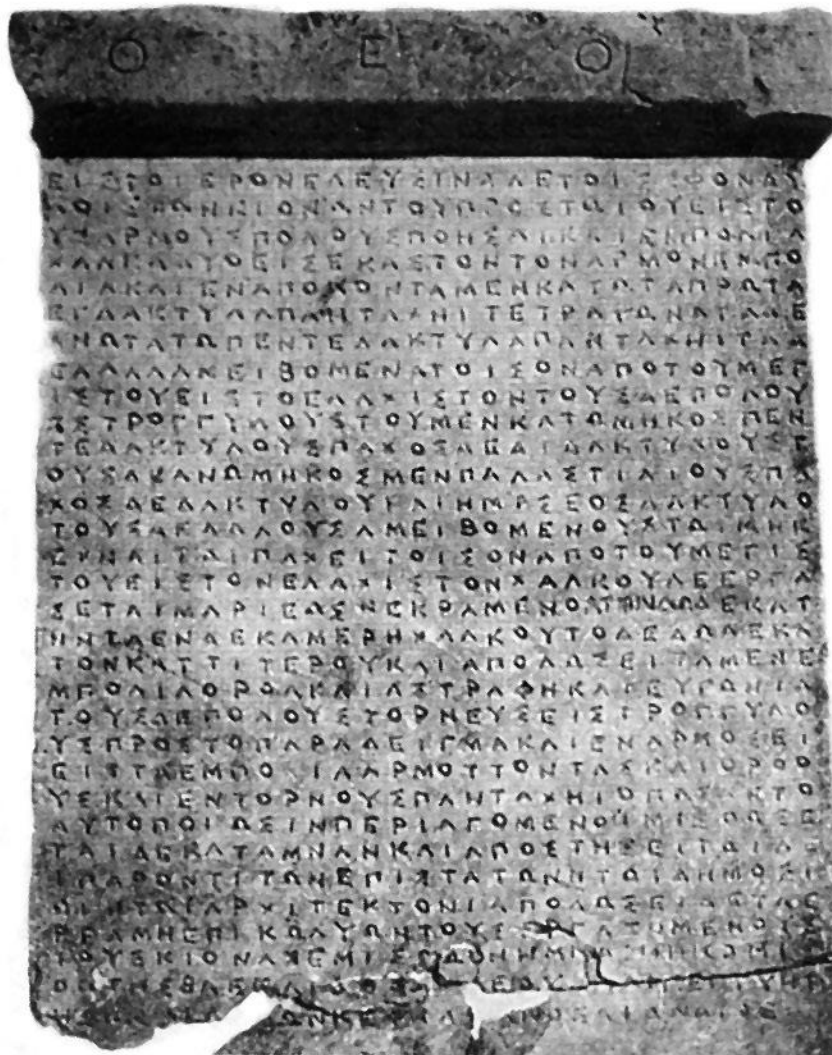 Θ Ε Ο
ΕΙΣΤΟΙΕΡΟΝΕΛΕΥΣΙΝΑΔΕΤΟΙΣΣΦΟΝΔΥ
ΛΟΙΣΤΩΝΚΙΟΝΩΝΤΟΥΠΡΟΣΤΩΙΟΥΕΙΣΤΟ
ΥΣΑΡΜΟΥΣΠΟΛΟΥΣΠΟΗΣΑΙΚΑΙΕΜΠΟΛΙΑ
ΧΑΛΚΑΔΥΟΕΙΣΕΚΑΣΤΟΝΤΟΝΑΡΜΟΝΕΜΠΟ
ΛΙΑΚΑΙΕΝΑΠΟΛΟΝΤΑΜΕΝΚΑΤΩΤΑΠΡΩΤΑ
ΕΞΔΑΚΤΥΛΑΠΑΝΤΑΧΗΙΤΕΤΡΑΓΩΝΑΤΑΔΕ
ΑΝΩΤΑΤΩΠΕΝΤΕΔΑΚΤΥΛΑΠΑΝΤΑΧΗΙΤΑΔ
ΕΑΛΛΑΑΜΕΙΒΟΜΕΝΑΤΟΙΣΟΝΑΠΟΤΟΥΜΕΓ
ΙΣΤΟΥΕΙΣΤΟΕΛΑΧΙΣΤΟΝΤΟΥΣΔΕΠΟΛΟΥ
ΣΣΤΡΟΓΓΥΛΟΥΣΤΟΥΜΕΝΚΑΤΩΜΗΚΟΣΠΕΝ
ΤΕΔΑΚΤΥΛΟΥΣΠΑΧΟΣΔΕΔΥΟΔΑΚΤΥΛΟΥΣΤ
ΟΥΣΔΕΑΝΩΜΗΚΟΣΜΕΝΠΑΛΑΣΤΙΑΙΟΥΣΠΑ
ΧΟΣΔΕΔΑΚΤΥΛΟΥΚΑΙΗΜΙΣΕΟΣΔΑΚΤΥΛΟ
ΤΟΥΣΔΕΑΛΛΟΥΣΑΜΕΙΒΟΜΕΝΟΥΣΤΩΙΜΗΚ
ΕΙΚΑΙΤΩΙΠΑΧΕΙΤΟΙΣΟΝΑΠΟΤΟΥΜΕΓΙΣ
ΤΟΥΕΙΣΤΟΝΕΛΑΧΙΣΤΟΝΧΑΛΚΟΥΔΕΕΡΓΑ
ΣΕΤΑΙΜΑΡΙΕΩΣΚΕΚΡΑΜΕΝΟΤΗΝΔΩΔΕΚΑΤ
ΗΝΤΑΕΝΔΕΚΑΜΕΡΗΧΑΛΚΟΥΤΟΔΕΔΩΔΕΚΑ
ΤΟΝΚΑΤΤΙΤΕΡΟΥΚΑΙΑΠΟΔΩΣΕΙΤΑΜΕΝΕ
ΜΠΟΛΙΑΟΡΘΑΚΑΙΑΣΤΡΑΦΗΚΑΙΕΥΓΩΝΙΑ
ΤΟΥΣΔΕΠΟΛΟΥΣΤΟΡΝΕΥΣΕΙΣΤΡΟΓΓΥΛΟ
ΥΣΠΡΟΣΤΟΠΑΡΑΔΕΙΓΜΑΚΑΙΕΝΑΡΜΟΣΕΙ
ΕΙΣΤΑΕΜΠΟΛΙΑΑΡΜΟΤΤΟΝΤΑΣΚΑΙΟΡΘΟ
ΥΣΚΑΙΕΝΤΟΡΝΟΥΣΠΑΝΤΑΧΗΙΟΠΩΣΑΚΤΟ
ΑΥΤΟΠΟΙΩΣΙΝΠΕΡΙΑΓΟΜΕΝΟΙΜΙΣΘΩΣΕ
ΤΑΙΔΕΚΑΤΑΜΝΑΝΚΑΙΑΠΟΣΤΗΣΕΙΤΩΙΑΕ
ΙΠΑΡΟΝΤΙΤΩΝΕΠΙΣΤΑΤΩΝΗΤΩΙΔΗΜΟΣΙ
ΩΙΗΤΩΙΑΡΧΙΤΕΚΤΟΝΙΑΠΟΔΩΣΕΙΔΕΤΑΕ
ΡΓΑΜΗΕΠΙΚΩΛΥΩΝΤΟΥΣΕΡΓΑΖΟΜΕΝΟΥΣ
ΤΟΥΣΚΙΟΝΑΣΕΜΙΣ